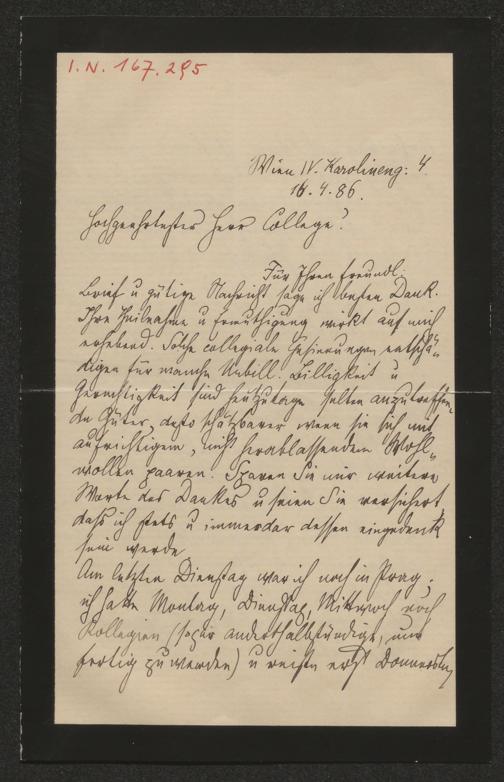 I. N. 167.295
Wien IV. Karolineng: 4
14.4.86.
Hochgeehrtester Herr College!
Für Ihren freundl.
Brief u gütige Nachricht sage ich besten Dank.
Ihre Theilnahme u Ermuthigung wirkt auf mich
erhebend. Solche collegiale Gesinnungen entschä-
digen für manche Unbill. Billigkeit u
Gerechtigkeit sind heutzutage selten anzutreffen-
de Güter, desto schätzbarer wenn sie sich mit
aufrichtigem, nicht herablassendem Wohl-
wollen paaren. Sparen Sie mir weitere
Worte des Dankes u seien Sie versichert,
dass ich stets u immerdar dessen eingedenk
sein werde
Am letzten Dienstag war ich noch in Prag,
ich hatte Montag, Dienstag, Mittwoch noch
Kollegien (sogar anderthalbstündige, um
fertig zu werden) u reiste erst Donnerstag